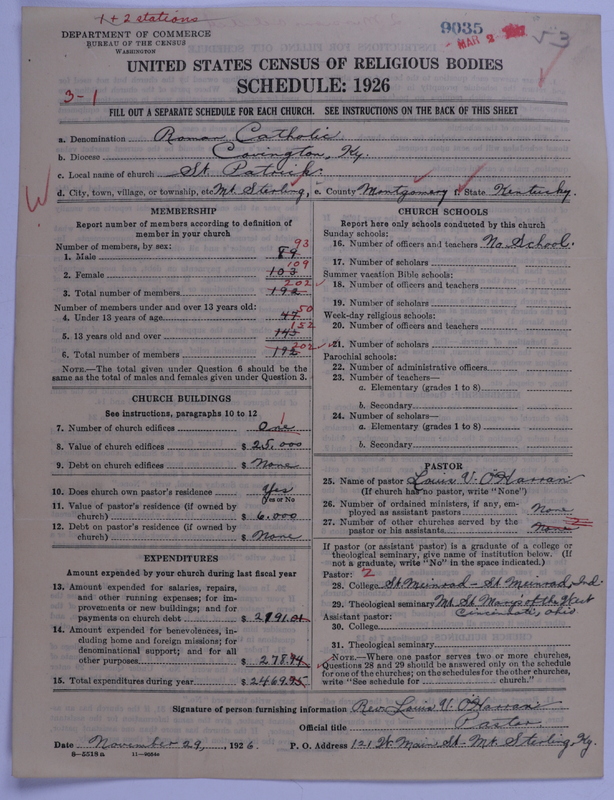 1 + 2 stations
DEPARTMENT OF COMMERCE
BUREAU OF THE CENSUS
WASHINGTON
9035
MAR 2
53
UNITED STATES CENSUS OF RELIGIOUS BODIES
SCHEDULE: 1926
3-1
FILL OUT A SEPARATE SCHEDULE FOR EACH CHURCH. SEE INSTRUCTIONS ON THE BACK OF THIS SHEET
a. Denomination Roman Catholic
b. Diocese Covington, Ky.
c. Local name of church St. Patrick.
d. City, town, village, or township, etc. Mt. Sterling, e. County Montgomery f. State Kentucky.
W
MEMBERSHIP
Report number of members according to definition of
member in your church
Number of members, by sex:
1. Male 89 93
2. Female 103 109
3. Total number of members 192 202
Number of members under and over 13 years old:
4. Under 13 years of age 47 50
5. 13 years old and over 145 152
6. Total number of members 192 202
NOTE.—The total given under Question 6 should be
same as the total of males and females given under Question 3.
CHURCH BUILDINGS
See instructions, paragraphs 10 to 12
7. Number of church edifices One 1
8. Value of church edifices $ 25,000
9. Debt on church edifices $ None
10. Does church own pastor's residence Yes
(Yes or No)
11. Value of pastor's residence (if owned by
church) $ 6,000
12. Debt on pastor's residence (if owned by
church) $ None
EXPENDITURES
Amount expended by your church during last fiscal year
13. Amount expended for salaries, repairs,
and other running expenses; for im-
provements or new buildings; and for
payments on church debt $ 2191.01
14. Amount expended for benevolences, in-
cluding home and foreign missions; for
denominational support; and for all
other purposes $ 278.94
15. Total expenditures during year $ 2469.95
CHURCH SCHOOLS
Report here only schools conducted by this church
Sunday schools:
16. Number of officers and teachers No School.
17. Number of scholars
Summer vacation Bible schools:
18. Number of officers and teachers
19. Number of scholars
Week-day religious schools:
20. Number of officers and teachers
21. Number of scholars
Parochial schools:
22. Number of administrative officers
23. Number of teachers—
a. Elementary (grades 1 to 8)
b. Secondary
24. Number of scholars—
a. Elementary (grades 1 to 8)
b. Secondary
PASTOR
25. Name of pastor Louis V. O'Harran
(If church has no pastor, write "None")
26. Number of ordained ministers, if any, em-
ployed as assistant pastors None
27. Number of other churches served by the
pastor or his assistants None 2
If pastor (or assistant pastor) is a graduate of a college or
theological seminary, give name of institution below. (If
not a graduate, write "No" in the space indicated.)
Pastor: 2
28. College St. Meinrad - St Meinrad, Ind.
29. Theological seminary Mt. St. Mary's of the West
Cincinnati, Ohio
Assistant pastor:
30. College
31. Theological seminary
NOTE.—Where one pastor serves two or more churches,
Questions 28 and 29 should be answered only on the schedule
for one of the churches; on the schedules for the other churches,
write "See schedule for church."
Signature of person furnishing information Rev. Louis V. O'Harran
Official title Pastor
Date November 29, 1926. P. O. Address 121 W. Main St. Mt. Sterling, Ky.
8—5518 a 11—9584